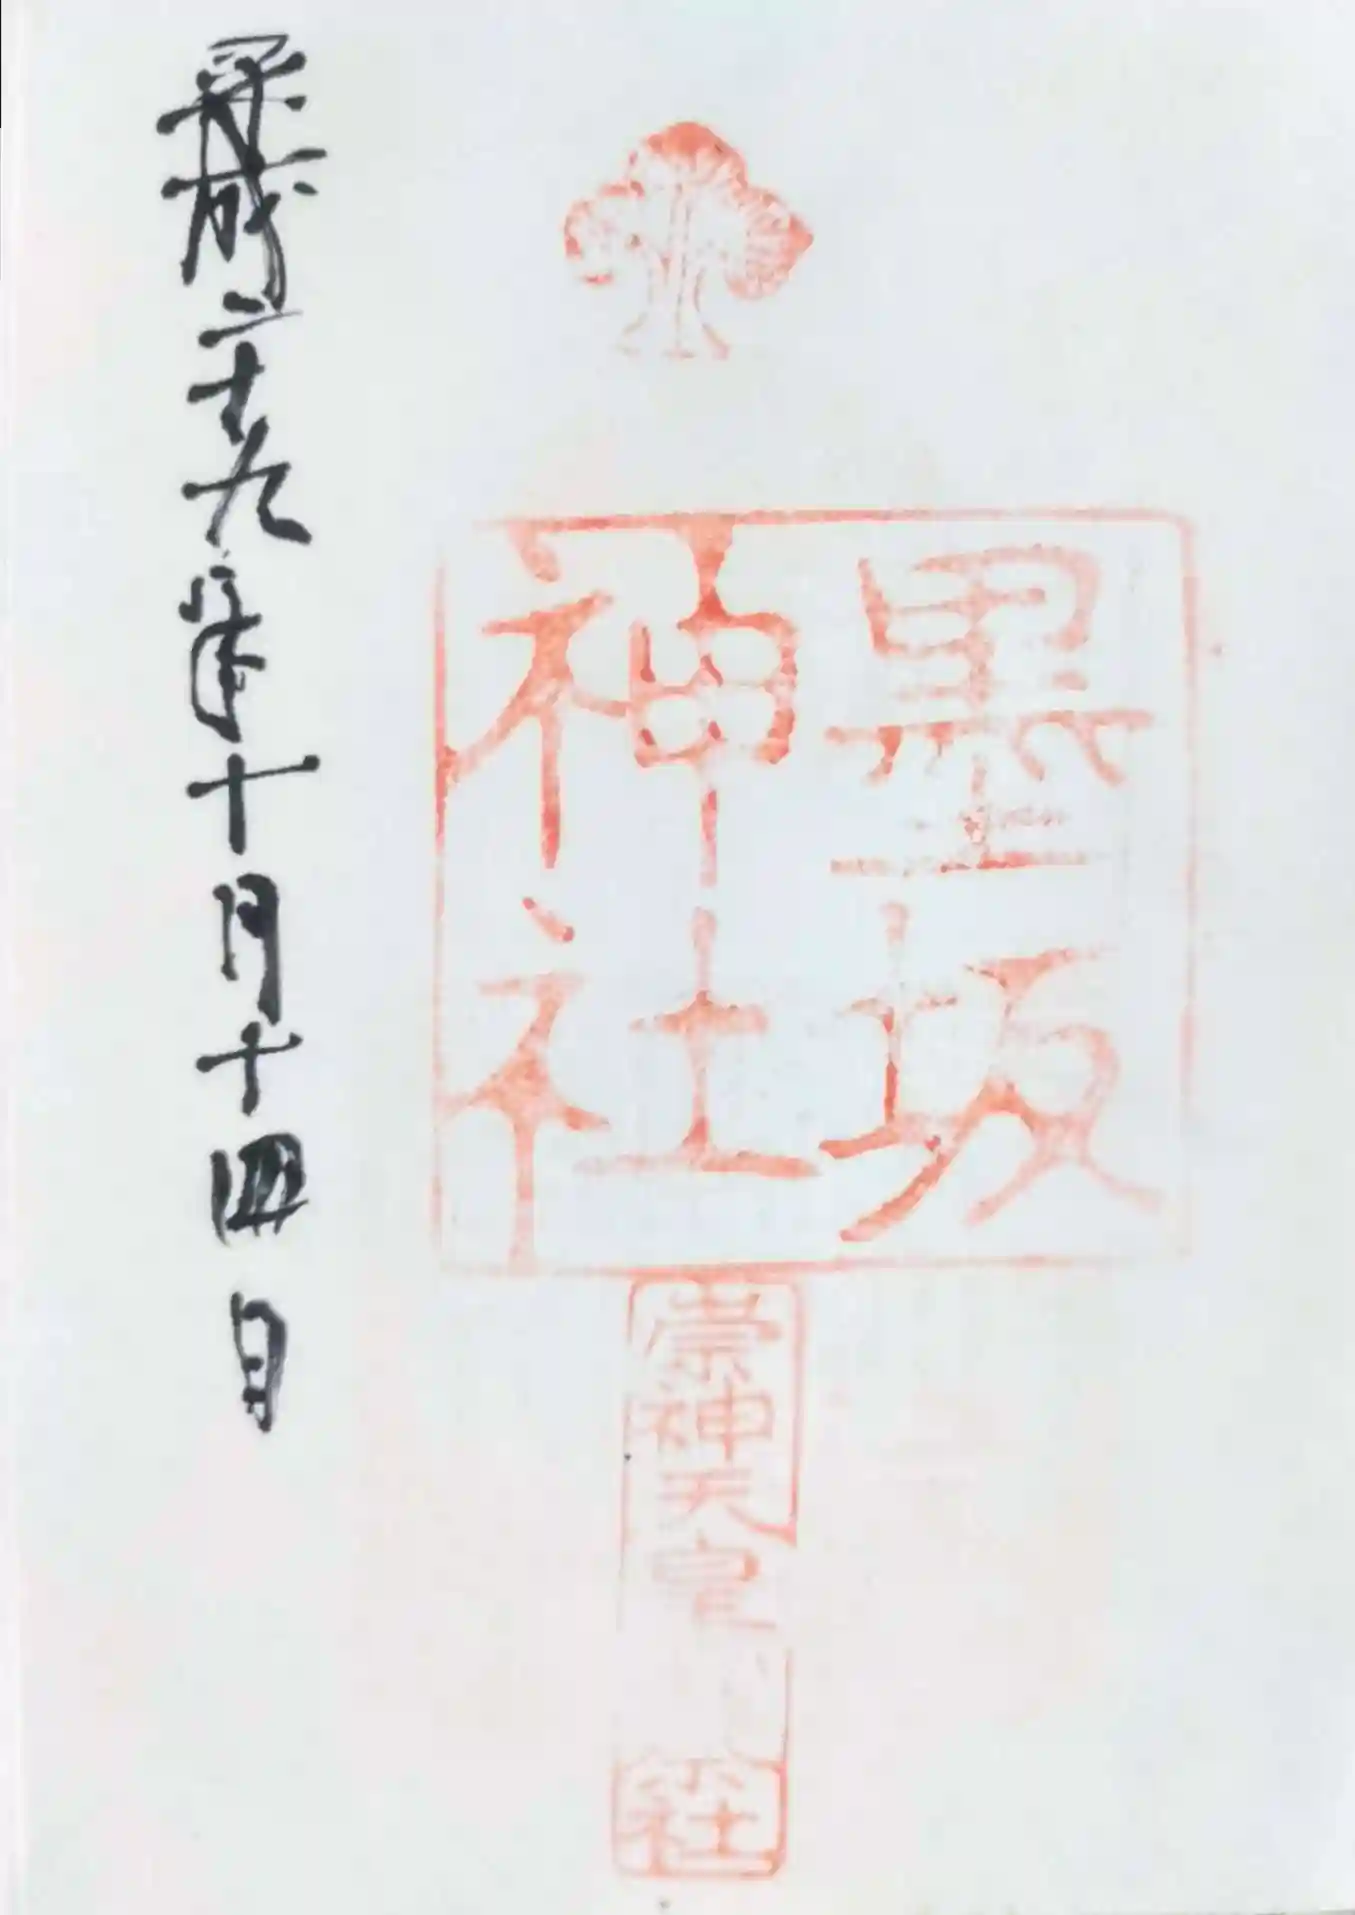 墨坂
神社
崇神天皇
社
平成二十九年十月十四日